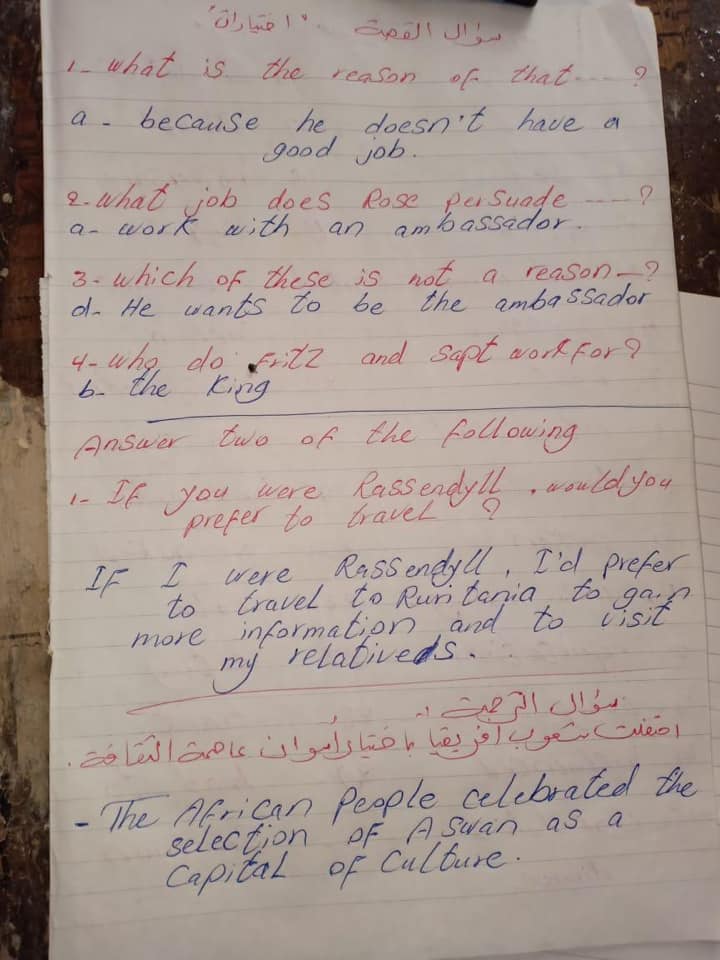 سؤال القصة : "اختيارات"
1- what is the reason of that --- ?
a - because he doesn't have a
good job.
2. what job does Rose persuade ---- ?
a- work with an ambassador.
3- which of these is not a reason - ?
d- He wants to be the ambassador
4- who do Fritz and Sapt work for ?
b- the King
Answer two of the following
1- If you were Rassendyll , would you
prefer to travel ?
If I were Rassendyll , I'd prefer
to travel to Ruritania to gain
more information and to visit
my relativeds .
سؤال الترجمة :
احتفلت شعوب أفريقيا باختيار أسوان عاصمة الثقافة .
- The African People celebrated the
selection of Aswan as a
Capital of Culture .